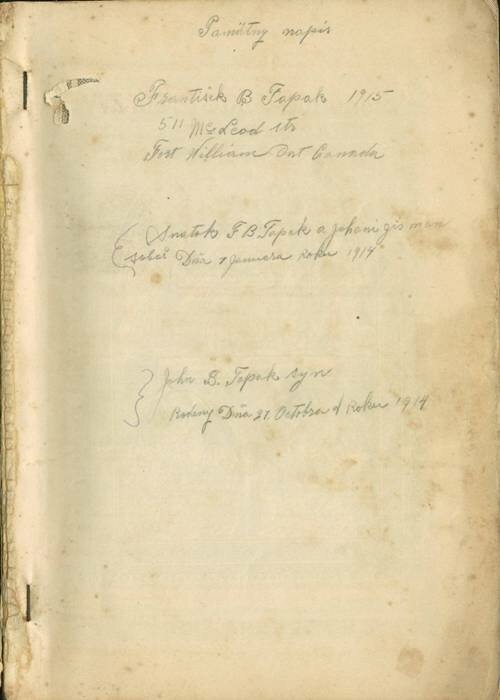 Pamätny napis
František B Tapak 1915
511 McLeod str
Fort William Ont Canada
Snatek F B Tapak a
sobaš Dňa 7 Januara roku 1914
John B. Tapak syn
Rodeny Dňa 27 Octobra d Roku 1914